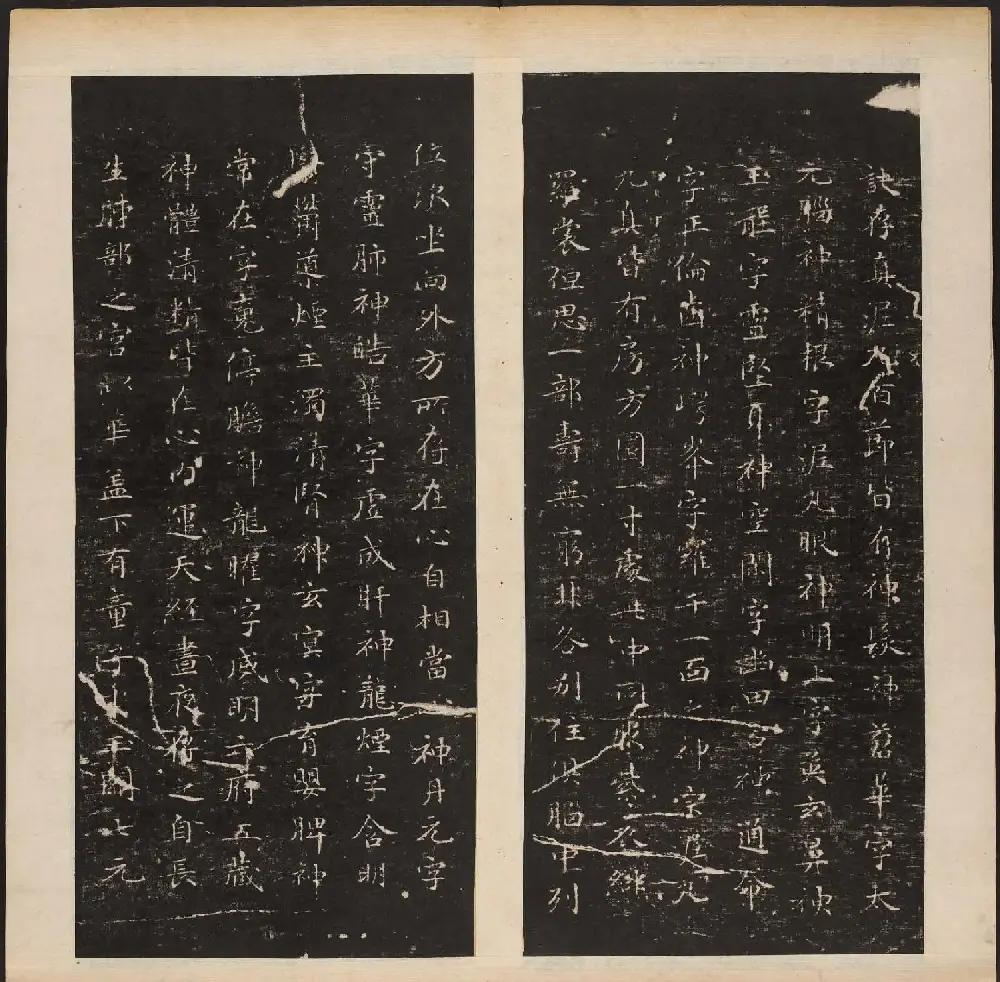 訣存真泥丸百節皆有神髮神蒼華字太
元腦神精根字泥丸眼神明上字英玄鼻神
玉壟字靈堅耳神空閑字幽田舌神通命
字正倫齒神崿峯字羅千一面之神宗泥丸
九真皆有房方圓一寸處此中同服紫衣緋
羅裳但思一部壽無窮非各別住俱腦中列
位次坐向外方所存在心自相當神丹元字
守靈肺神皓華字虛成肝神龍煙字含明
鬱導煙主濁清腎神玄冥字育嬰脾神
常在字魂停膽神龍曜字威明六府五藏
神體清精皆在心內運天經晝夜存之自長
生肺部之宮似華蓋下有童子坐玉闕七元